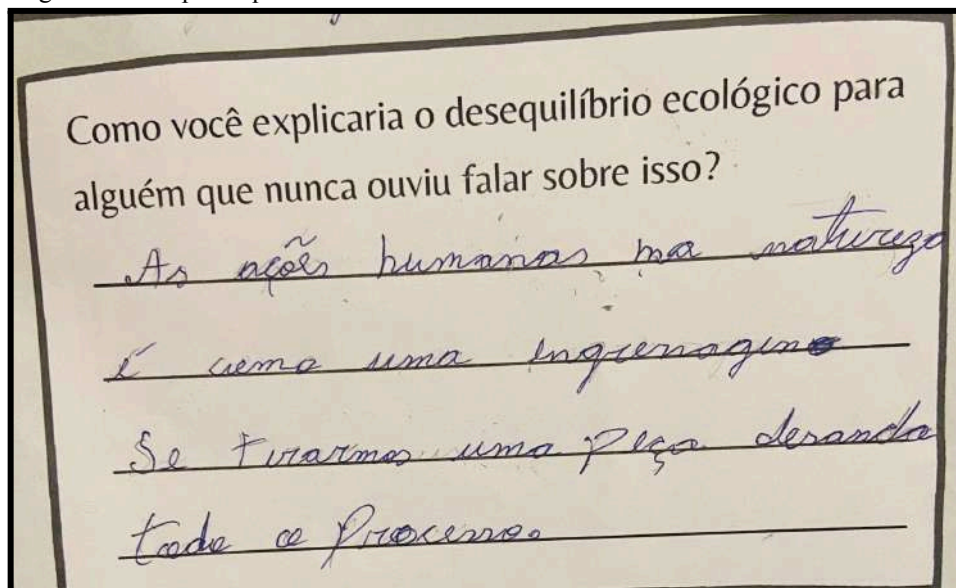 Como você explicaria o desequilíbrio ecológico para
alguém que nunca ouviu falar sobre isso?
As ações humanas na natureza
é como uma engrenagem
Se tirarmos uma peça desanda
todo o processo.